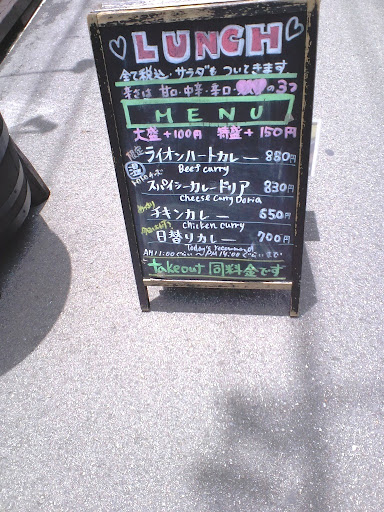 LUNCH
全て税込・サラダもついてきます
辛さは 甘口・中辛・辛口・の3つ
MENU
大盛+100円 特盛+150円
限定 ライオンハートカレー 880円
Beef curry
スパイシーカレードリア 830円
Cheese Curry Doria
チキンカレー 650円
chicken curry
日替りカレー 700円
Today's recommend
AM11:00ぐらい〜PM14:00ぐらいまで
takeout 同料金です